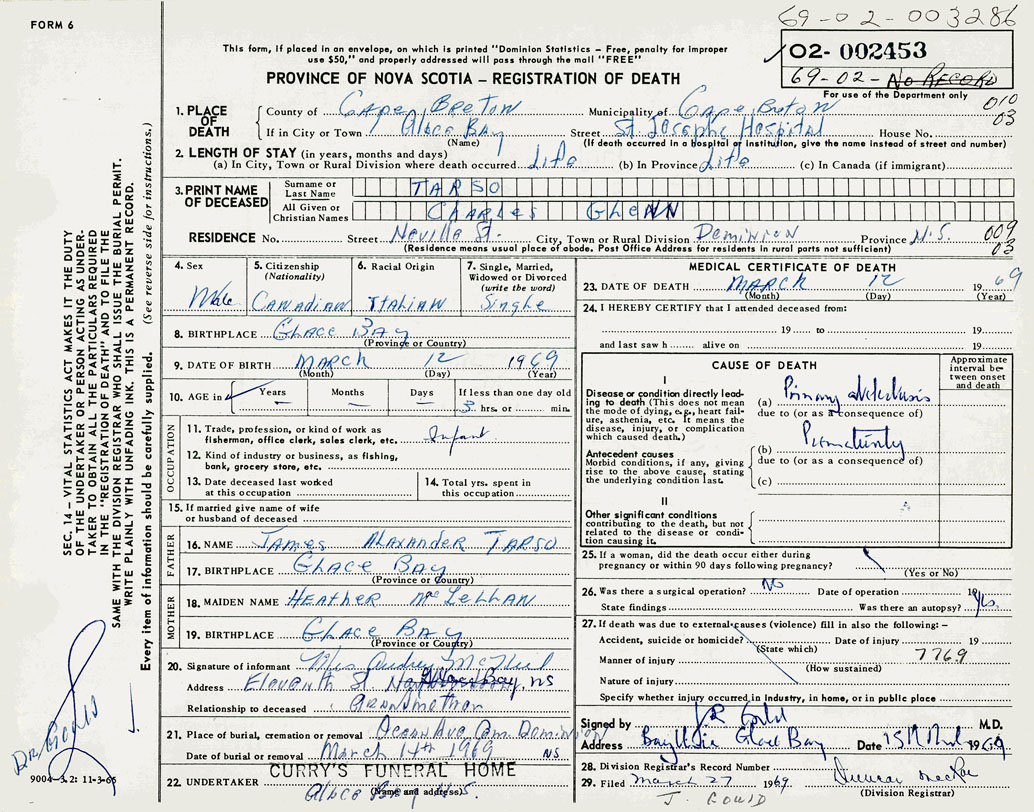 69-02-003286
FORM 6
This form, if placed in an envelope, on which is printed "Dominion Statistics – Free, penalty for improper
use $50," and properly addressed will pass through the mail "FREE"
02-002453
69-02- No RECORD
PROVINCE OF NOVA SCOTIA – REGISTRATION OF DEATH
For use of the Department only
010
03
1. PLACE OF DEATH
County of Cape Breton Municipality of Cape Breton
If in City or Town Glace Bay Street St. Josephs Hospital House No.
(Name) (If death occurred in a hospital or institution, give the name instead of street and number)
2. LENGTH OF STAY (in years, months and days)
(a) In City, Town or Rural Division where death occurred Life (b) In Province Life (c) In Canada (if immigrant)
3. PRINT NAME OF DECEASED
Surname or Last Name TARSO
All Given or Christian Names CHARLES GLENN
RESIDENCE No. Street Neville St. City, Town or Rural Division Dominion Province N.S.
009
03
(Residence means usual place of abode. Post Office Address for residents in rural parts not sufficient)
4. Sex Male
5. Citizenship (Nationality) Canadian
6. Racial Origin Italian
7. Single, Married, Widowed or Divorced (write the word) Single
8. BIRTHPLACE Glace Bay
(Province or Country)
9. DATE OF BIRTH March 12 1969
(Month) (Day) (Year)
10. AGE in Years Months Days If less than one day old
3 hrs. or min.
OCCUPATION
11. Trade, profession, or kind of work as
fisherman, office clerk, sales clerk, etc. Infant
12. Kind of industry or business, as fishing,
bank, grocery store, etc.
13. Date deceased last worked
at this occupation
14. Total yrs. spent in
this occupation
15. If married give name of wife
or husband of deceased
FATHER
16. NAME James Alexander Tarso
17. BIRTHPLACE Glace Bay
(Province or Country)
MOTHER
18. MAIDEN NAME Heather McLellan
19. BIRTHPLACE Glace Bay
(Province or Country)
20. Signature of informant Mrs Audrey McNeil
Address Eleventh St Glace Bay, NS
Relationship to deceased Grandmother
21. Place of burial, cremation or removal Ocean Ave Cem. Dominion
Date of burial or removal March 14th 1969 NS
CURRY'S FUNERAL HOME
22. UNDERTAKER Glace Bay N.S.
(Name and address)
MEDICAL CERTIFICATE OF DEATH
23. DATE OF DEATH March 12 1969
(Month) (Day) (Year)
24. I HEREBY CERTIFY that I attended deceased from:
19 to 19
and last saw h alive on 19
CAUSE OF DEATH
Approximate interval between onset and death
I
Disease or condition directly lead-
ing to death (This does not mean
the mode of dying, e.g., heart fail-
ure, asthenia, etc. It means the
disease, injury, or complication
which caused death.)
(a) Primary atelectasis
due to (or as a consequence of)
Antecedent causes
Morbid conditions, if any, giving
rise to the above cause, stating
the underlying condition last.
(b) Prematurity
due to (or as a consequence of)
(c)
II
Other significant conditions
contributing to the death, but not
related to the disease or condi-
tion causing it.
25. If a woman, did the death occur either during
pregnancy or within 90 days following pregnancy?
(Yes or No)
26. Was there a surgical operation? No Date of operation 19
State findings Was there an autopsy? Yes.
27. If death was due to external causes (violence) fill in also the following: –
Accident, suicide or homicide? Date of injury 19
(State which)
7769
Manner of injury
(How sustained)
Nature of injury
Specify whether injury occurred in Industry, in home, or in public place
Signed by M.D.
Address Glace Bay Date 15 1969
28. Division Registrar's Record Number
29. Filed March 27 1969 Duncan MacRae
(Division Registrar)
J. GOULD
SEC. 14 – VITAL STATISTICS ACT MAKES IT THE DUTY
OF THE UNDERTAKER OR PERSON ACTING AS UNDER-
TAKER TO OBTAIN ALL THE PARTICULARS REQUIRED
IN THE "REGISTRATION OF DEATH" AND TO FILE THE
SAME WITH THE DIVISION REGISTRAR WHO SHALL ISSUE THE BURIAL PERMIT.
WRITE PLAINLY WITH UNFADING INK. THIS IS A PERMANENT RECORD.
Every item of information should be carefully supplied. (See reverse side for instructions.)
9004-3.2: 11-3-66